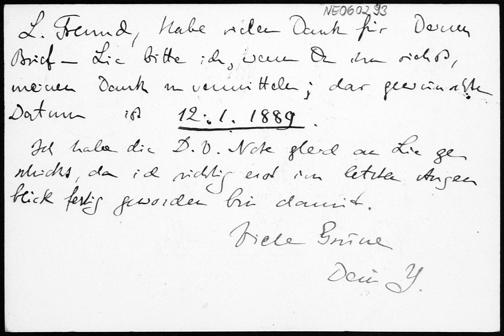 NE060293
L. Freund, habe vielen Dank für Deinen
Brief – Lie bitte ich, wenn Du ihn siehst,
meinen Dank zu vermitteln; das gewünschte
Datum ist 12.1.1889.
Ich habe die D.O. Note gleich an Lie ge
schickt, da ich richtig erst im letzten Augen
blick fertig geworden bin damit.
Viele Grüsse
Dein Y.